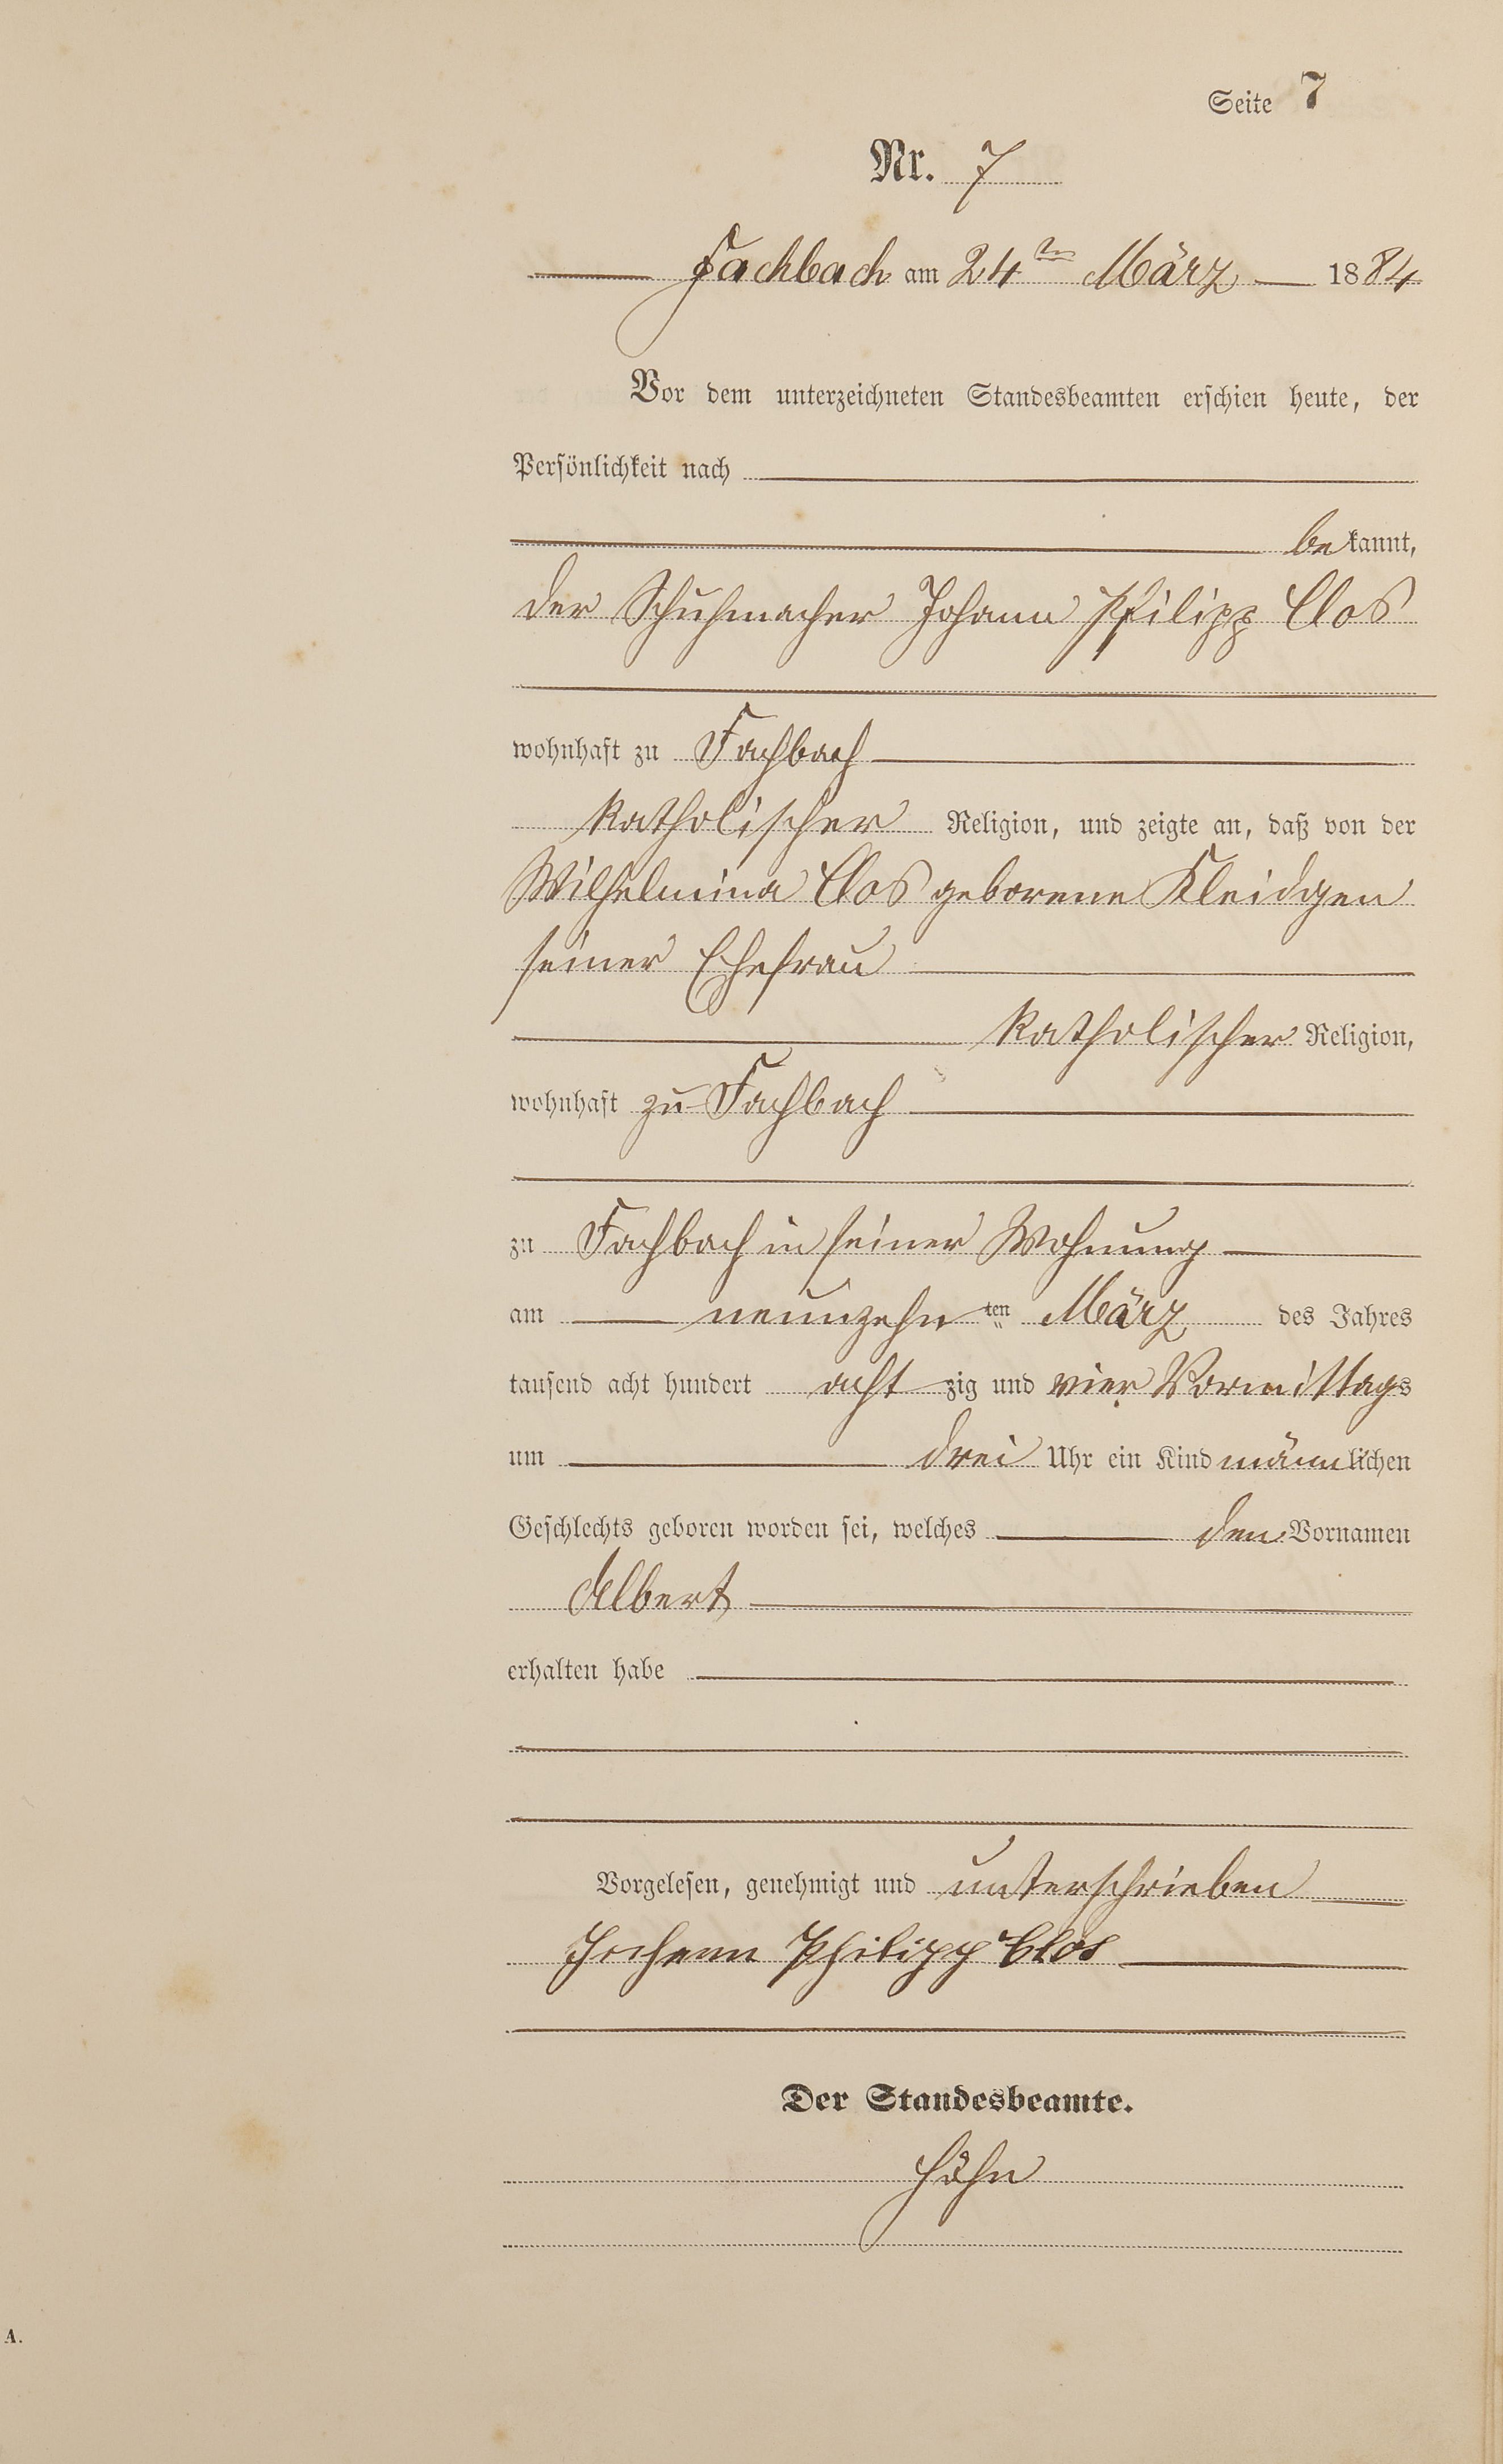 Seite 7
Nr. 7
Fachbach am 24ten März 1884
Vor dem unterzeichneten Standesbeamten erschien heute, der
Persönlichkeit nach
bekannt,
der Schuhmacher Johann Philipp Clos
wohnhaft zu Fachbach
katholischer Religion, und zeigte an, daß von der
Wilhelmina Clos geborene Kleidgen
seiner Ehefrau
katholischer Religion,
wohnhaft zu Fachbach
zu Fachbach in seiner Wohnung
am neunzehnten März des Jahres
tausend acht hundert acht zig und vier Vormittags
um drei Uhr ein Kind männlichen
Geschlechts geboren worden sei, welches den Vornamen
Albert
erhalten habe
Vorgelesen, genehmigt und unterschrieben
Johann Philipp Clos
Der Standesbeamte.
Höhn
A.